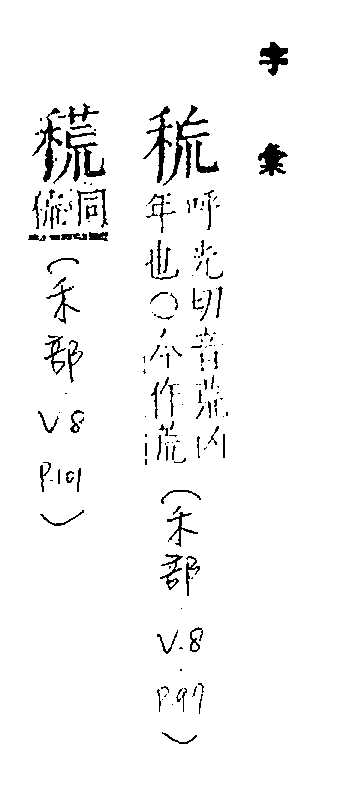 字彙
呼光切音荒凶
年也○今作荒
(禾部 V.8 P.97)
䅣
同
(禾部 V8 P.101)